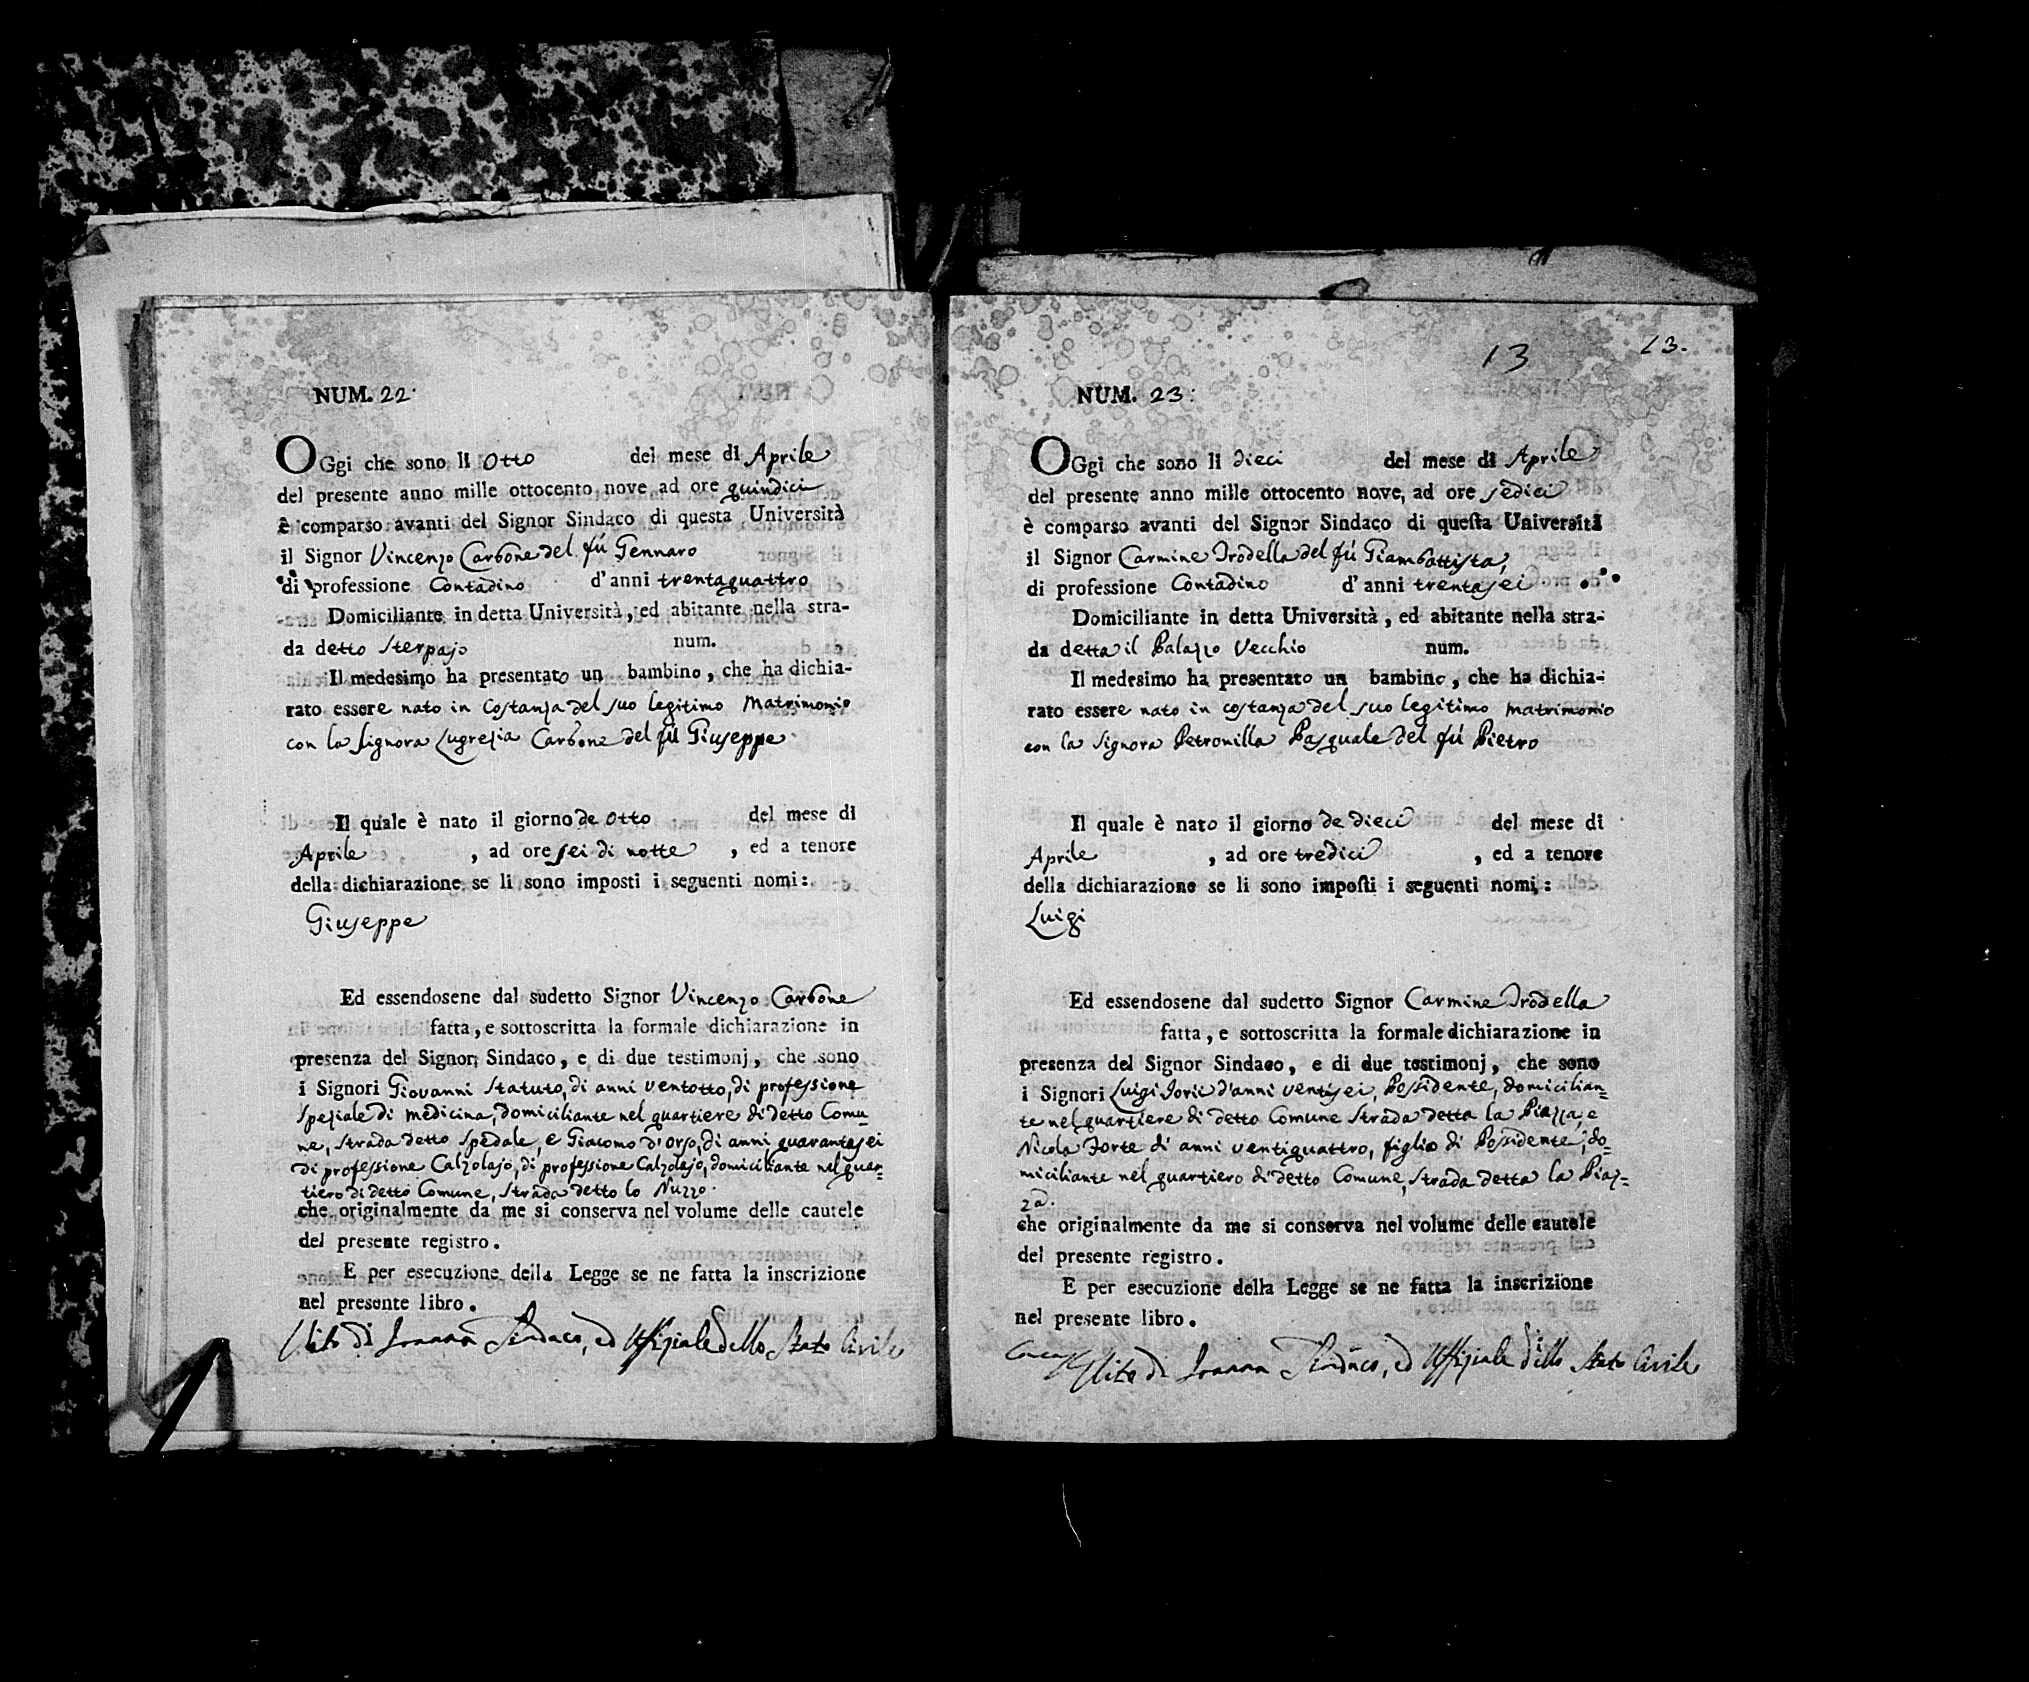 NUM. 22.
OGgi che sono li Otto del mese di Aprile
del presente anno mille ottocento nove ad ore quindici
è comparso avanti del Signor Sindaco di questa Università
il Signor Vincenzo Carbone del fú Gennaro
di professione Contadino d'anni trentaquattro
Domiciliante in detta Università, ed abitante nella stra-
da detto Sterpajo num.
Il medesimo ha presentato un bambino, che ha dichia-
rato essere nato in Costanza del suo legitimo Matrimonio
con la Signora Lugrezia Carbone del fú Giuseppe
Il quale è nato il giorno de Otto del mese di
Aprile , ad ore sei di notte , ed a tenore
della dichiarazione se li sono imposti i seguenti nomi:
Giuseppe
Ed essendosene dal sudetto Signor Vincenzo Carbone
fatta, e sottoscritta la formale dichiarazione in
presenza del Signor Sindaco, e di due testimonj, che sono
i Signori Giovanni Statuto, di anni ventotto, di professione
Speziale di medicina, domiciliante nel quartiere di detto Comu=
ne, strada detto Spedale, e Giacomo d'Orso, di anni quarantasei
di professione Calzolajo, di professione Calzolajo, domiciliante nel quar=
tiero di detto Comune, strada detto lo Nuzzo.
che originalmente da me si conserva nel volume delle cautele
del presente registro.
E per esecuzione della Legge se ne fatta la inscrizione
nel presente libro.
Vito di Sindaco, ed Uffiziale dello Stato Civile
13 13.
NUM. 23.
OGgi che sono li dieci del mese di Aprile
del presente anno mille ottocento nove, ad ore sedici
è comparso avanti del Signor Sindaco di questa Università
il Signor Carmine Irodella del fú Giambattista,
di professione Contadino d'anni trentasei
Domiciliante in detta Università, ed abitante nella stra-
da detta il Palazzo Vecchio num.
Il medesimo ha presentato un bambino, che ha dichia-
rato essere nato in costanza del suo legitimo matrimonio
con la Signora Petronilla Pasquale del fú Pietro
Il quale è nato il giorno de dieci del mese di
Aprile , ad ore tredici , ed a tenore
della dichiarazione se li sono imposti i seguenti nomi:
Luigi
Ed essendosene dal sudetto Signor Carmine Irodella
fatta, e sottoscritta la formale dichiarazione in
presenza del Signor Sindaco, e di due testimonj, che sono
i Signori Luigi d'anni ventisei, Possidente, domicilian=
te nel quartiere di detto Comune Strada detta la Piazza, e
Nicola Forte di anni ventiquattro, figlio di Possidente, do=
miciliante nel quartiero di detto Comune, strada detta la Piaz=
za.
che originalmente da me si conserva nel volume delle cautele
del presente registro.
E per esecuzione della Legge se ne fatta la inscrizione
nel presente libro.
Vito di Sindaco, ed Uffiziale dello Stato Civile